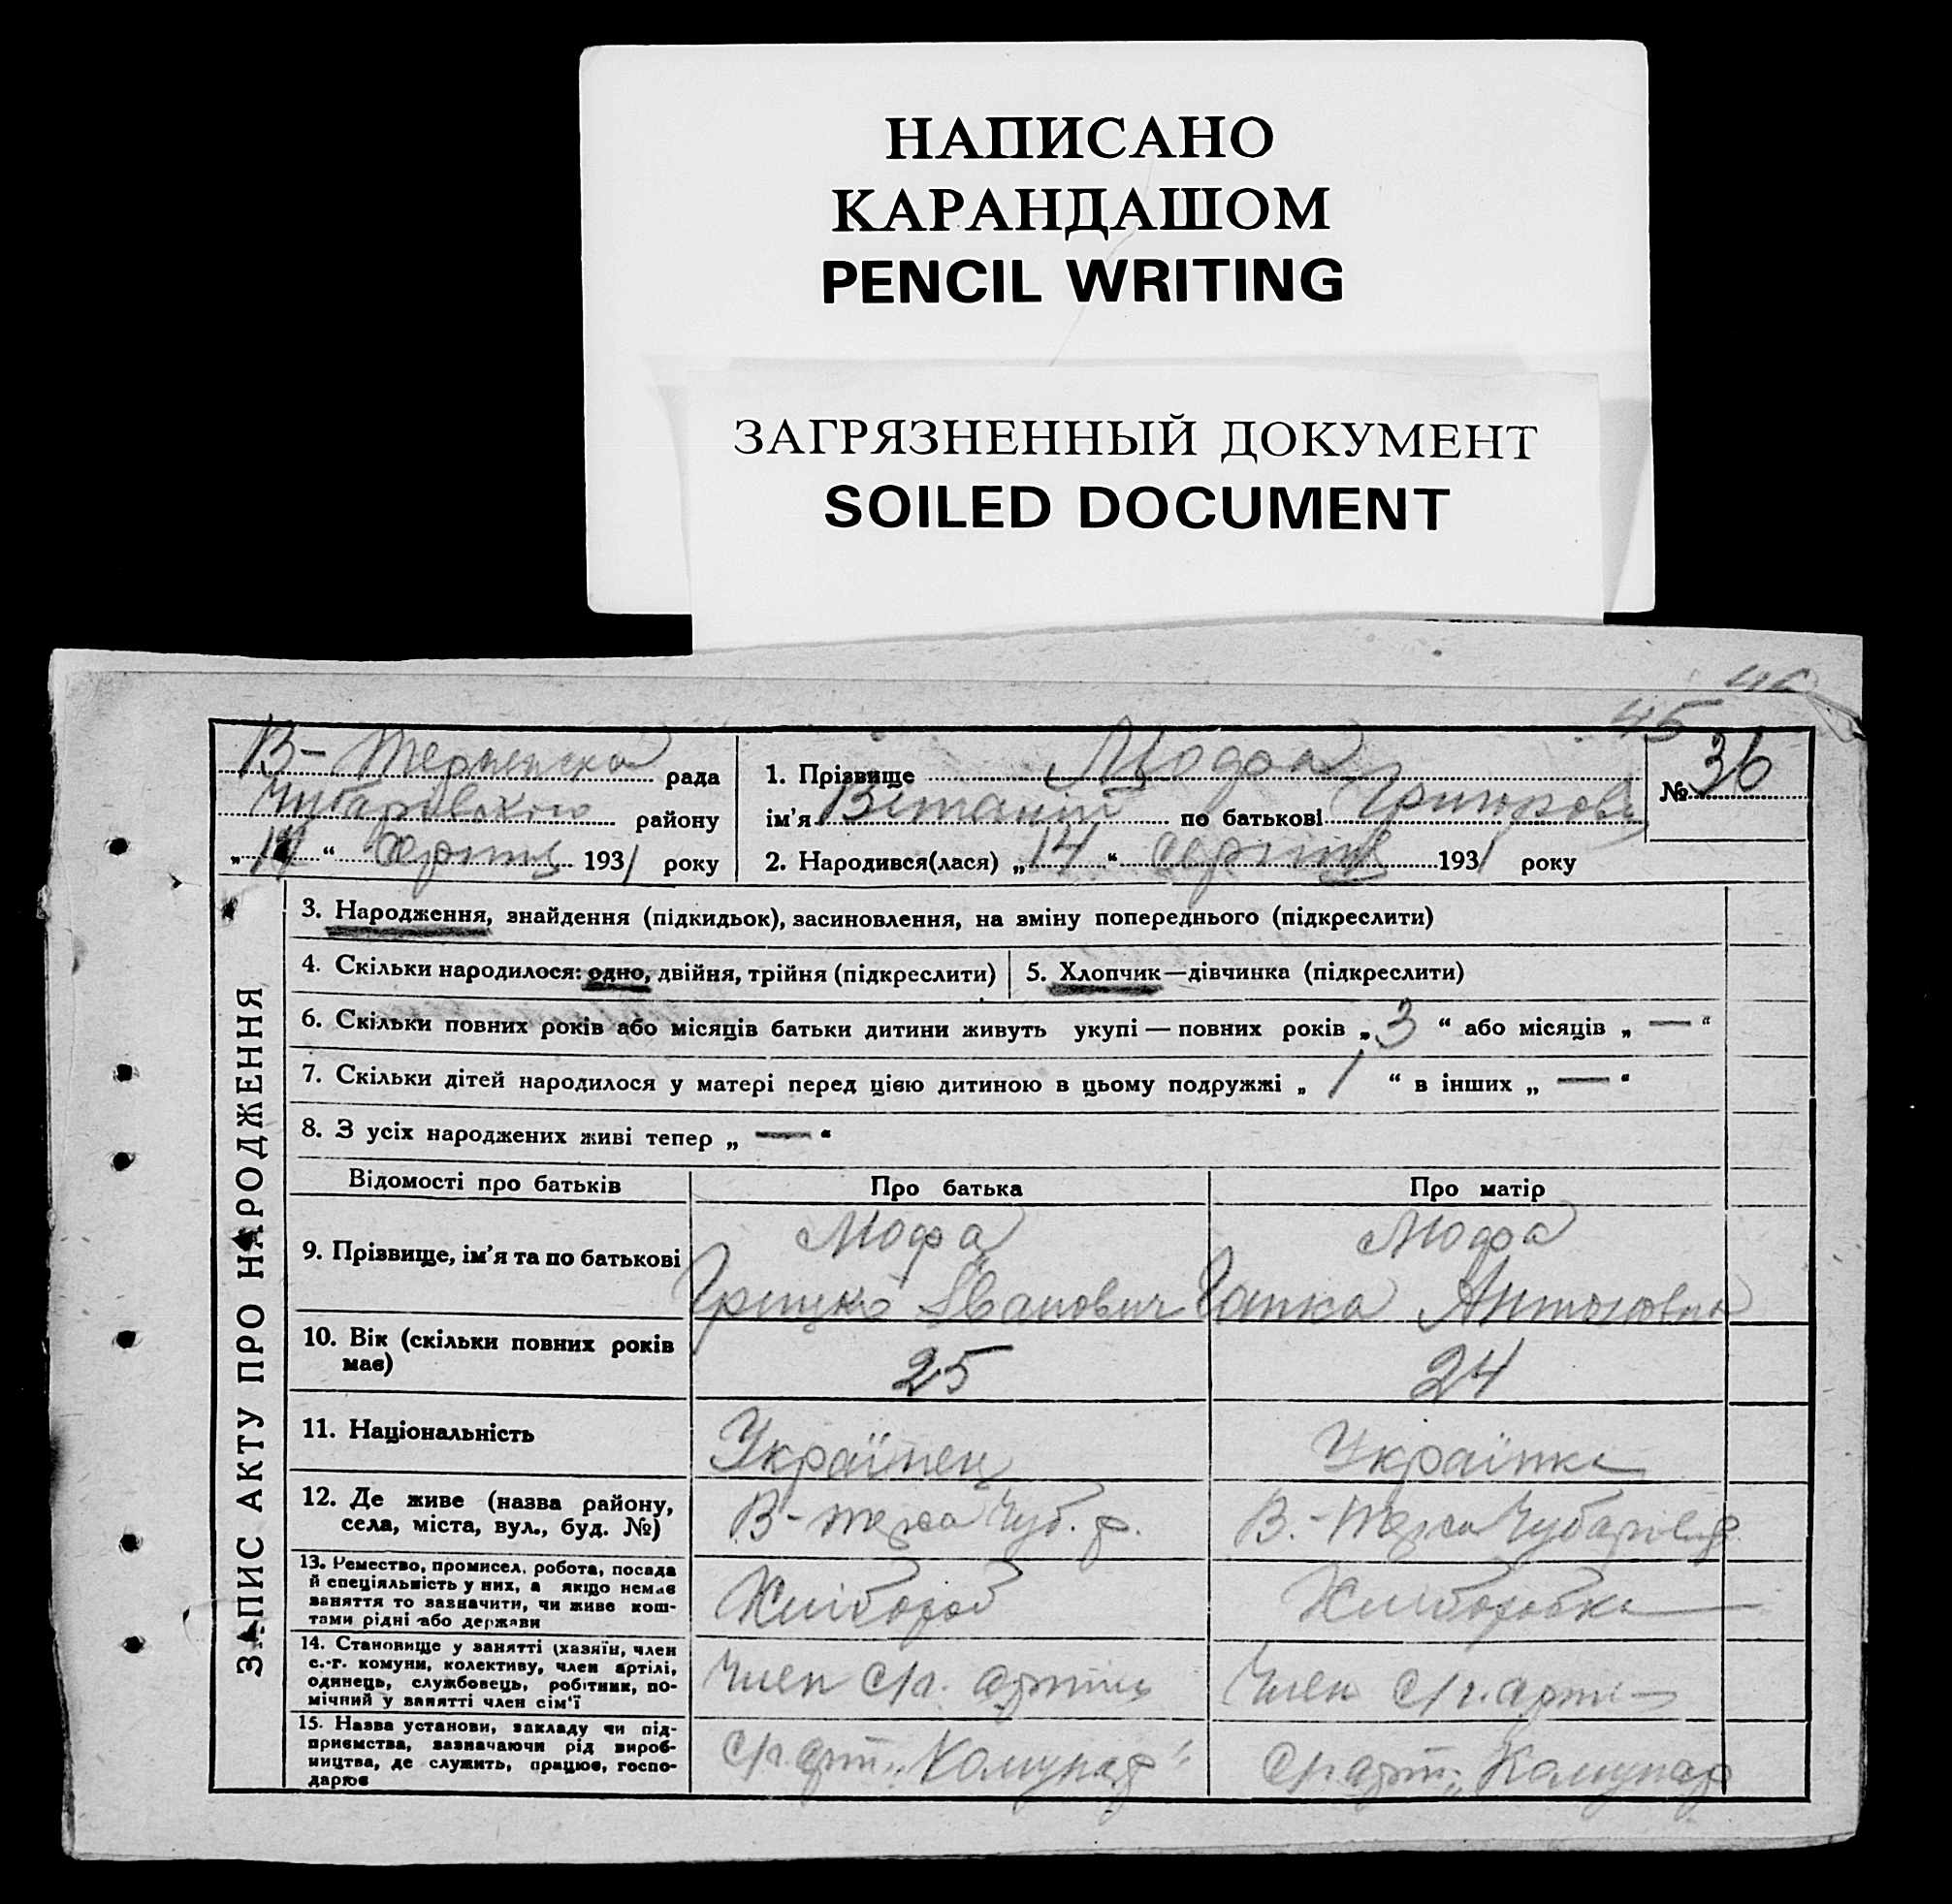 НАПИСАНО
КАРАНДАШОМ
PENCIL WRITING
ЗАГРЯЗНЕННЫЙ ДОКУМЕНТ
SOILED DOCUMENT
46
45
В- рада
Чубарівського району
„14“ Серпня 1931 року
1. Прізвище Мофа
ім'я Віталій по батькові
№ 36
2. Народився(лася) „14“ серпня 1931 року
ЗАПИС АКТУ ПРО НАРОДЖЕННЯ
3. Народження, знайдення (підкидьок), засиновлення, на зміну попереднього (підкреслити)
4. Скільки народилося: одно, двійня, трійня (підкреслити)
5. Хлопчик—дівчинка (підкреслити)
6. Скільки повних років або місяців батьки дитини живуть укупі — повних років „3“ або місяців „—“
7. Скільки дітей народилося у матері перед цією дитиною в цьому подружжі „1“ в інших „—“
8. З усіх народжених живі тепер „—“
Відомості про батьків Про батька Про матір
9. Прізвище, ім'я та по батькові
Мофа
Грицко Іванович
Мофа
Ганка Антоновна
10. Вік (скільки повних років має)
25
24
11. Національність
Українец
Українка
12. Де живе (назва району,
села, міста, вул., буд. №)
В-терса Чуб. р.
В.-Терса Чубарів. р.
13. Ремество, промисел, робота, посада
й спеціяльність у них, а якщо немає
заняття то зазначити, чи живе кош-
тами рідні або держави
Хлібороб
Хліборобка
14. Становище у занятті (хазяїн, член
с.-г. комуни, колективу, член артілі,
одинець, службовець, робітник, по-
мічний у занятті член сім'ї
Член с/г. артіль
Член с/г. арті—
15. Назва установи, закладу чи під-
приємства, зазначаючи рід вироб-
ництва, де служить, працює, госпо-
дарює
с/г. арт. „Комунар“
с/г. арт. „Комунар